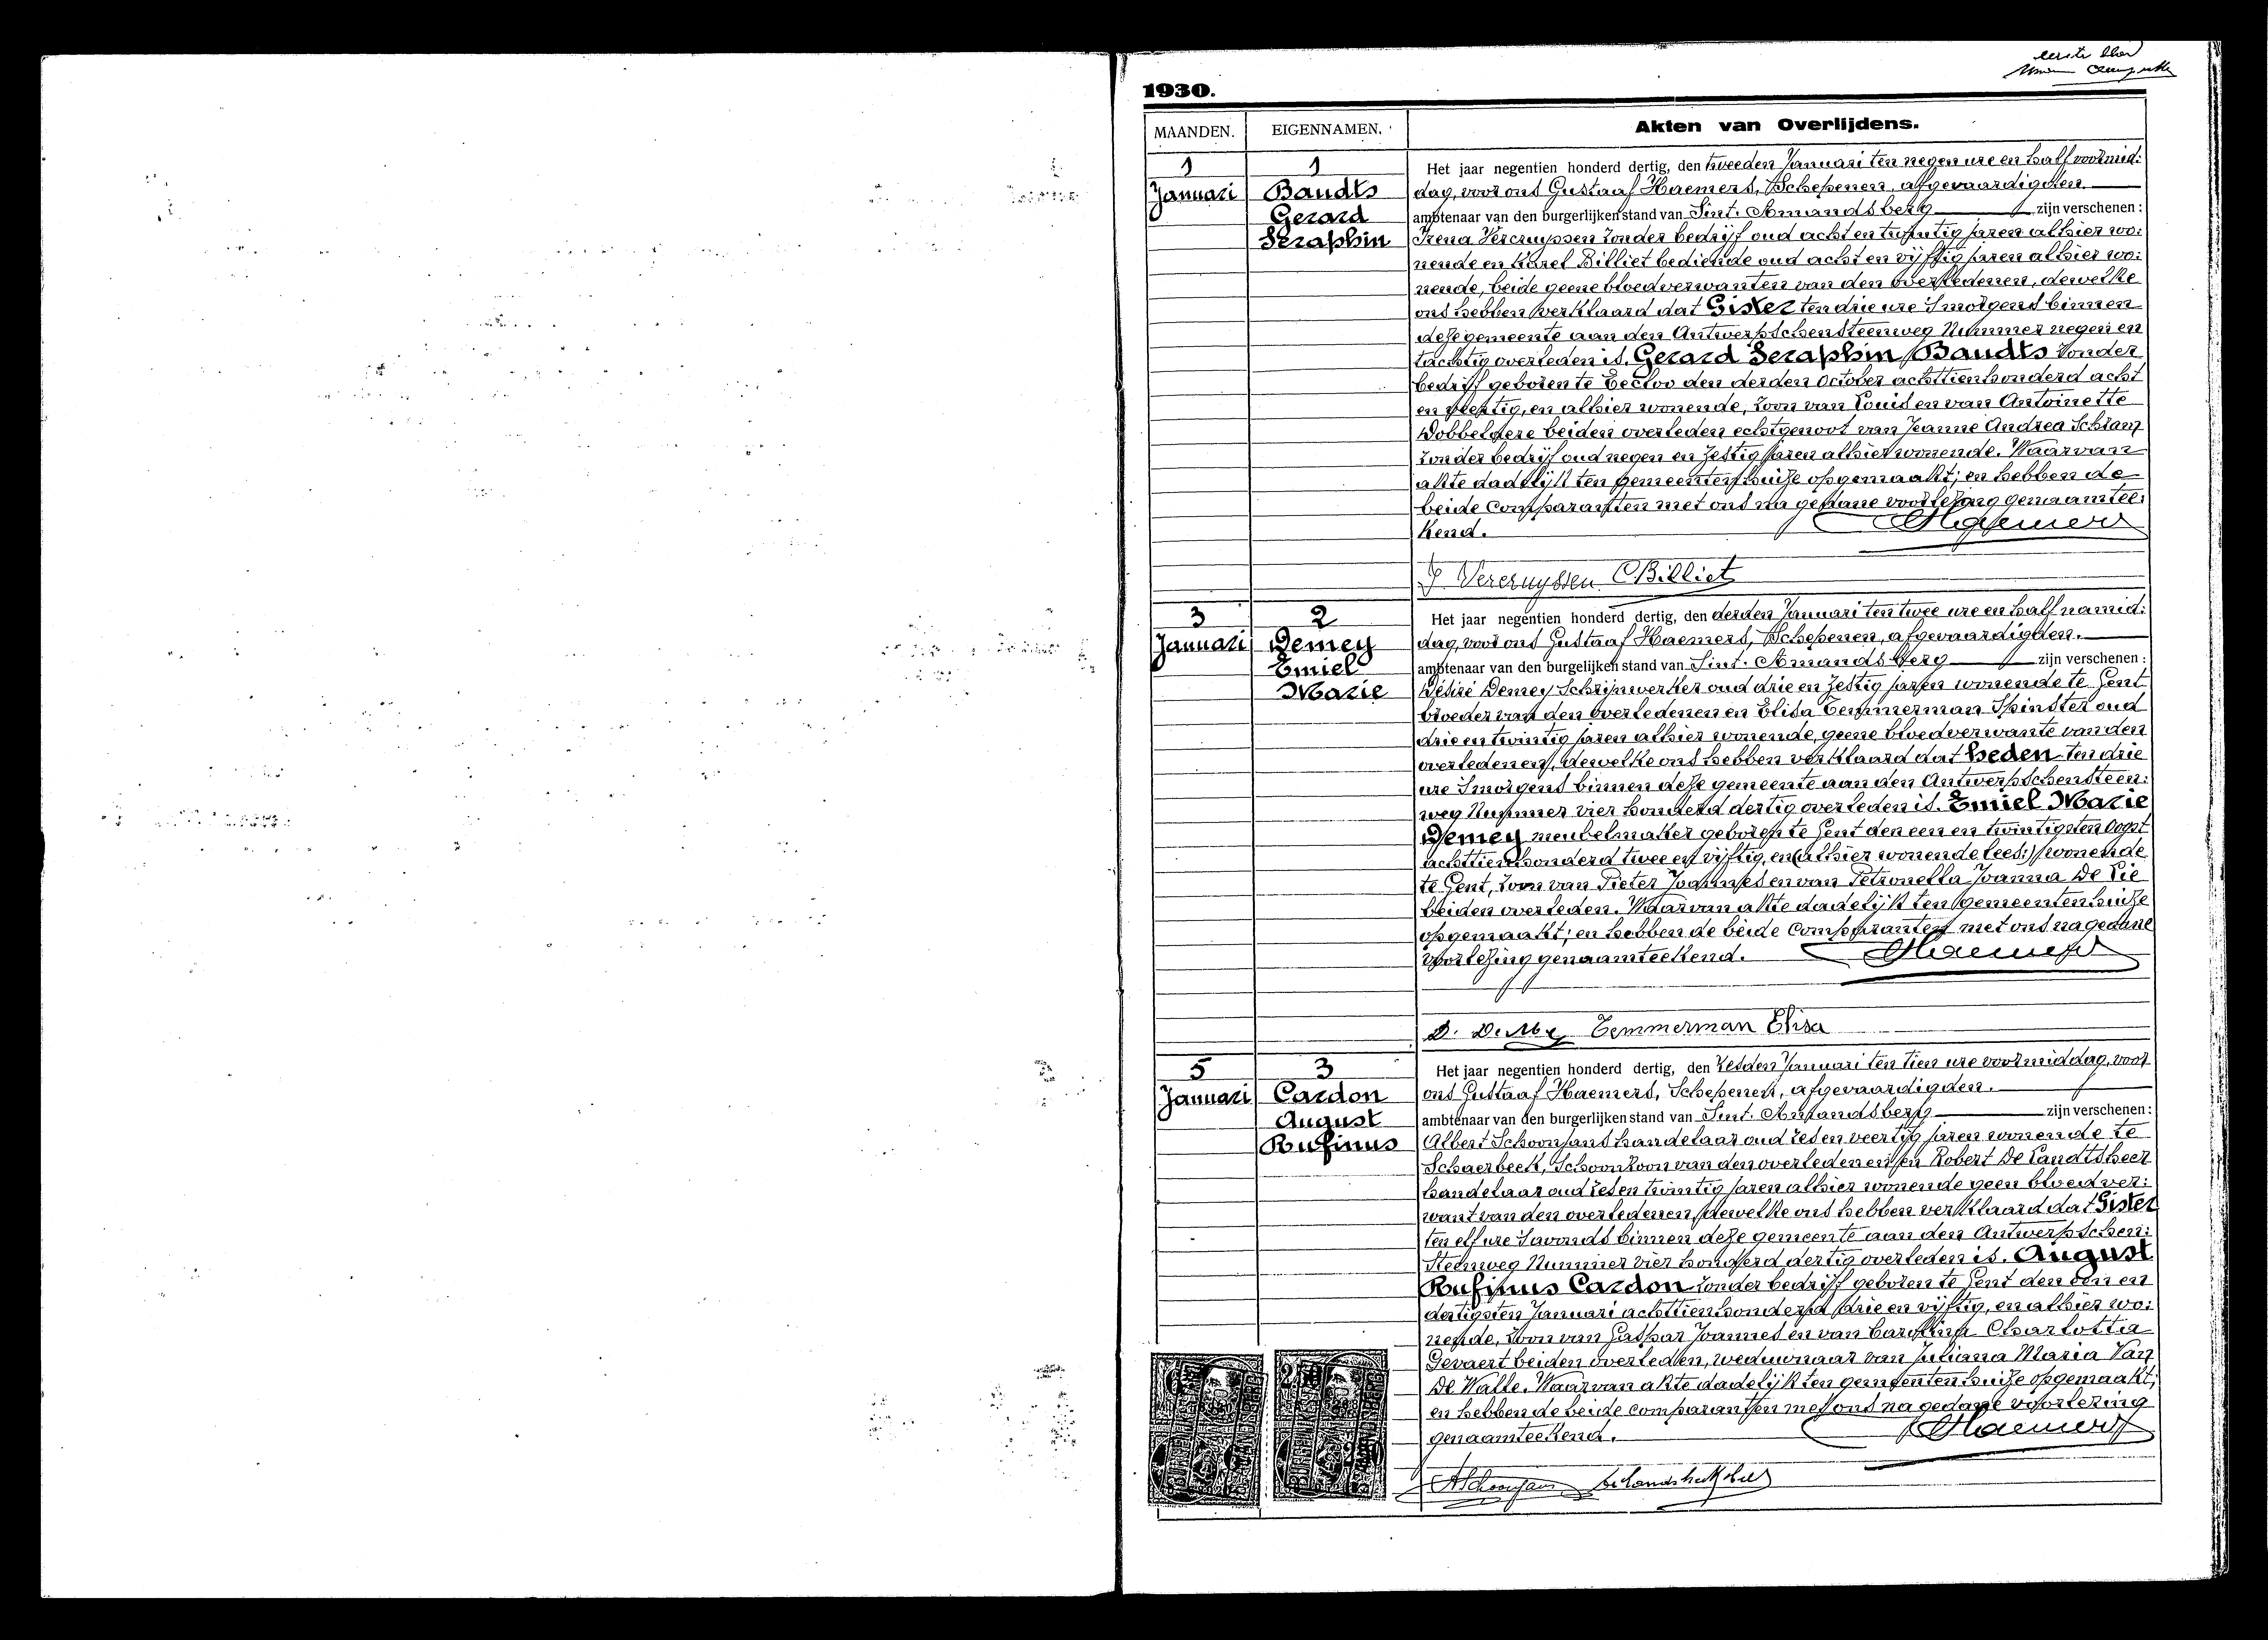 eerste
1930.
MAANDEN. EIGENNAMEN. Akten van Overlijdens.
1 1 Het jaar negentien honderd dertig, den tweeden Januari ten negen ure en half voormid:
Januari Baudts dag, voor ons Gustaaf Haemers, Schepenen, afgevaardigden
Gerard ambtenaar van den burgerlijken stand van Sint. Amandsberg zijn verschenen :
Seraphin Irena Vercruyssen zonder bedrijf oud acht en twintig jaren alhier wo:
nende en Karel Billiet bediende oud acht en vijftig jaren alhier wo:
nende, beide geene bloedverwanten van den overledenen, dewelke
ons hebben verklaard dat Gister ten drie ure 'smorgens binnen
deze gemeente aan den Antwerpschensteenweg Nummer negen en
tachtig overleden is. Gerard Seraphin Baudts zonder
bedrijf geboren te Eecloo den derden October achttienhonderd acht
en en alhier wonende, zoon van Louis en van Antoinette
Dobbelaere beiden overleden echtgenoot van Jeanne Andrea
zonder bedrijf oud negen en zestig jaren alhier wonende. Waarvan
akte dadelijk ten gemeentenhuize opgemaakt; en hebben de
beide comparanten met ons na gedane voorlezing genaamtee:
kend. GHaemers
I Vercruyssen CBilliet
3 2 Het jaar negentien honderd dertig, den derden Januari ten twee ure en half namid:
Januari Demey dag, voor ons Gustaaf Haemers, Schepenen, afgevaardigden.
Emiel ambtenaar van den burgelijken stand van Sint. Amandsberg zijn verschenen :
Marie Désiré Demey Schrijnwerker oud drie en zestig jaren wonende te Gent
broeder van den overledenen en Elisa Temmerman Spinster oud
drie en twintig jaren alhier wonende, geene bloedverwante van den
overledenen, dewelke ons hebben verklaard dat heden ten drie
ure 'smorgens binnen deze gemeente aan den Antwerpschensteen:
weg Nummer vier honderd dertig overleden is. Emiel Marie
Demey meubelmaker geboren te Gent den een en twintigsten Oogst
achttienhonderd twee en vijftig, en (alhier wonende lees:) wonende
te Gent, zoon van Pieter Joannes en van Petronella Joanna De Lie
beiden overleden. Waarvan akte dadelijk ten gemeentenhuize
opgemaakt; en hebben de beide comparanten met ons na gedane
voorlezing genaamteekend. GHaemers
D. De Mey Temmerman Elisa
5 3 Het jaar negentien honderd dertig, den zesden Januari ten tien ure voormiddag, voor
Januari Cardon ons Gustaaf Haemers, Schepenen, afgevaardigden.
August ambtenaar van den burgerlijken stand van Sint. Amandsberg zijn verschenen :
Rufinus Albert Schoonjans handelaar oud zes en veertig jaren wonende te
Schaerbeek, Schoonzoon van den overledenen en Robert De Landtsheer
handelaar oud zes en twintig jaren alhier wonende geen bloedver:
want van den overledenen, dewelke ons hebben verklaard dat Gister
ten elf ure 'savonds binnen deze gemeente aan den Antwerpschen:
Steenweg Nummer vier honderd dertig overleden is. August
Rufinus Cardon zonder bedrijf geboren te Gent den een en
dertigsten Januari achttienhonderd drie en vijftig, en alhier wo:
nende, zoon van Gaspar Joannes en van Carolina Charlottia
Gevaert beiden overleden, weduwnaar van Juliana Maria Van
De Walle. Waarvan akte dadelijk ten gemeentenhuize opgemaakt;
en hebben de beide comparanten met ons na gedane voorlezing
genaamteekend. GHaemers
ASchoonjans